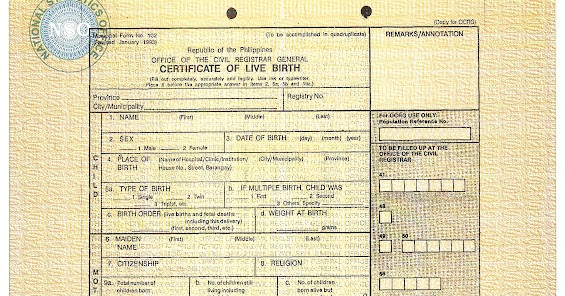 NATIONAL STATISTICS OFFICE
NSO
(Copy for OCRG)
Municipal Form No. 102
(Revised January 1993)
(To be accomplished in quadruplicate)
REMARKS/ANNOTATION
Republic of the Philippines
OFFICE OF THE CIVIL REGISTRAR GENERAL
CERTIFICATE OF LIVE BIRTH
(Fill out completely, accurately and legibly. Use ink or typewriter.
Place X before the appropriate answer in items 2, 5a, 5b and 19a.)
Province
Registry No.
City/Municipality
1. NAME (First) (Middle) (Last)
FOR OCRG USE ONLY:
Population Reference No.
2. SEX
1 Male 2 Female
3. DATE OF BIRTH (day) (month) (year)
TO BE FILLED UP AT THE
OFFICE OF THE CIVIL
REGISTRAR
CHILD
4. PLACE OF BIRTH
(Name of Hospital/Clinic/Institution/
House No., Street, Barangay)
(City/Municipality) (Province)
41
5a. TYPE OF BIRTH
1 Single 2 Twin
3 Triplet, etc.
b. IF MULTIPLE BIRTH, CHILD WAS
1 First 2 Second
3 Others, Specify
48
c. BIRTH ORDER (live births and fetal deaths
including this delivery)
(first, second, third, etc.)
d. WEIGHT AT BIRTH
grams
49 50
6. MAIDEN NAME (First) (Middle) (Last)
7. CITIZENSHIP
8. RELIGION
56
MOT
9a. Total number of
children born
b. No. of children still
living including
c. No. of children
born alive but